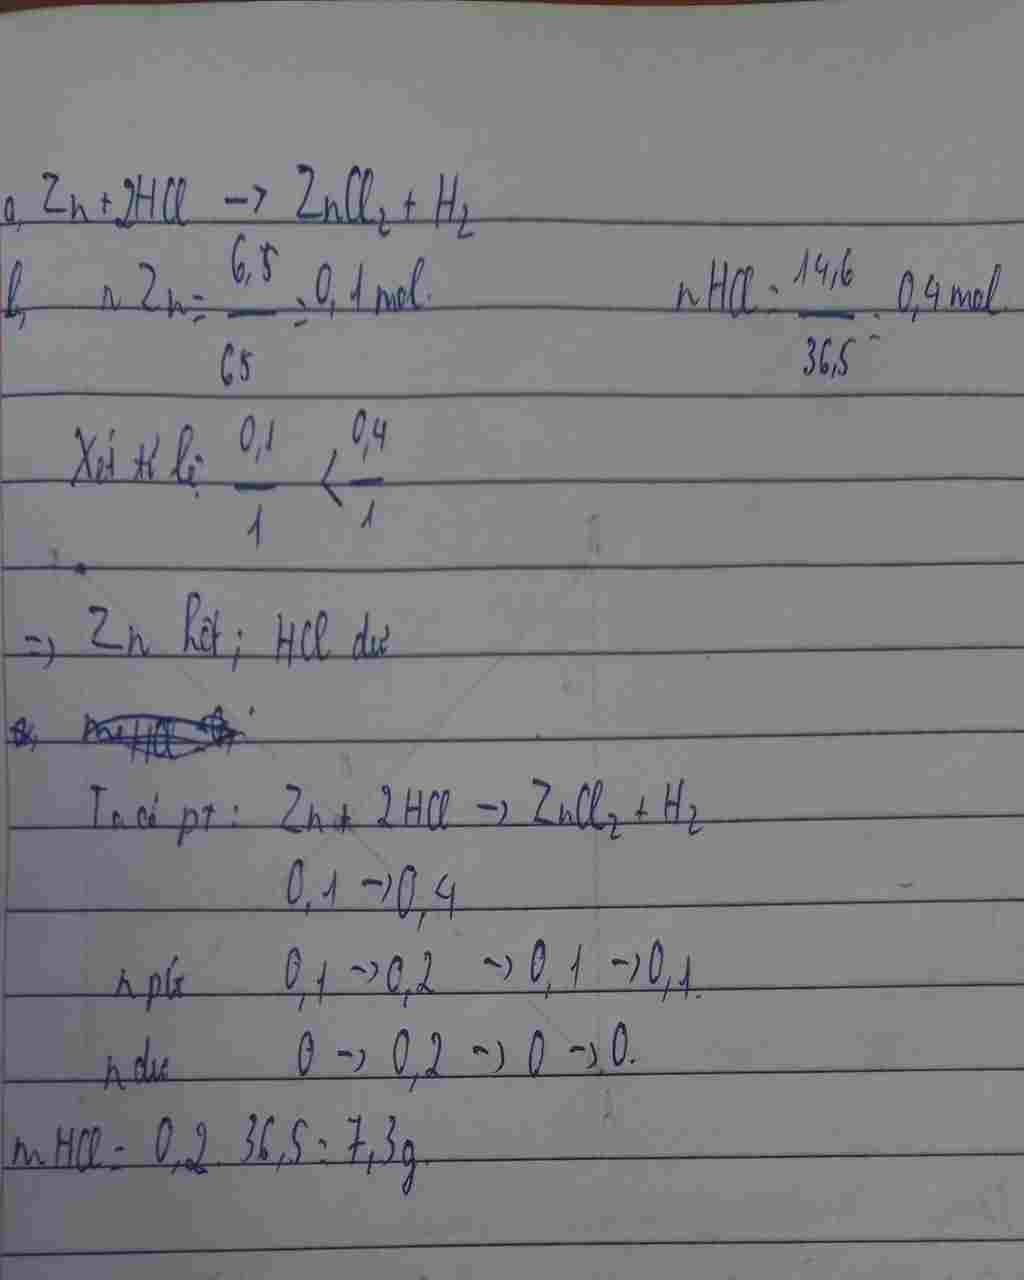 a, Zn + 2HCl -> ZnCl2 + H2
b, n Zn = 6,5/65 = 0,1 mol. nHCl = 14,6/36,5 = 0,4 mol
Xét tỉ lệ 0,1/1 < 0,4/1
=> Zn hết; HCl dư
Ta có pt: Zn + 2HCl -> ZnCl2 + H2
0,1 -> 0,4
n pứ 0,1 -> 0,2 -> 0,1 -> 0,1.
n dư 0 -> 0,2 -> 0 -> 0.
m HCl = 0,2. 36,5 = 7,3g.